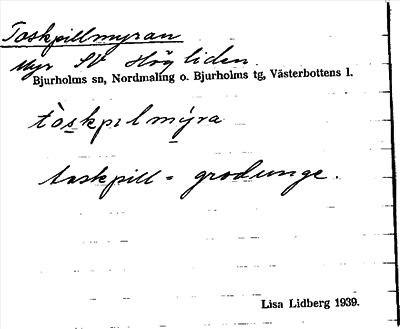 Toskpillmyran
Myr SV Högliden.
Bjurholms sn, Nordmaling o. Bjurholms tg, Västerbottens l.
tòskpılmýra
toskpill = grodunge.
Lisa Lidberg 1939.